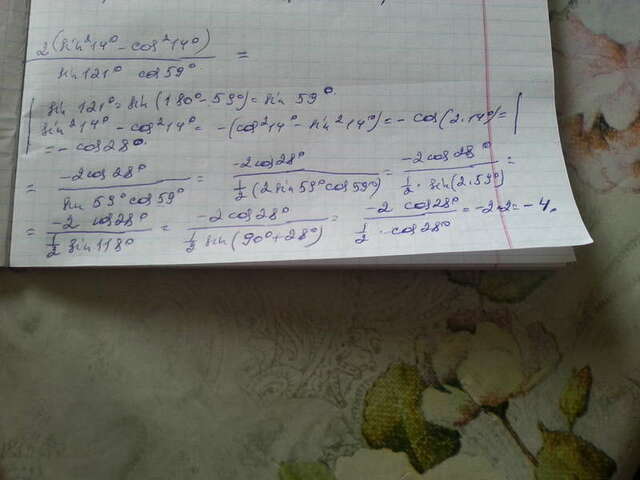 2(sin²14° - cos²14°) / sin 121° cos 59° =
| sin 121° = sin(180° - 59°) = sin 59°.
sin²14° - cos²14° = -(cos²14° - sin²14°) = - cos(2·14°) = |
= - cos28°.
= -2cos28° / sin 59° cos59° = -2cos28° / ½(2sin59° cos59°) = -2cos28° / ½·sin(2·59°) =
= -2 cos28° / ½ sin118° = -2cos28° / ½ sin(90°+28°) = -2 cos28° / ½ · cos28° = -2·2 = -4.